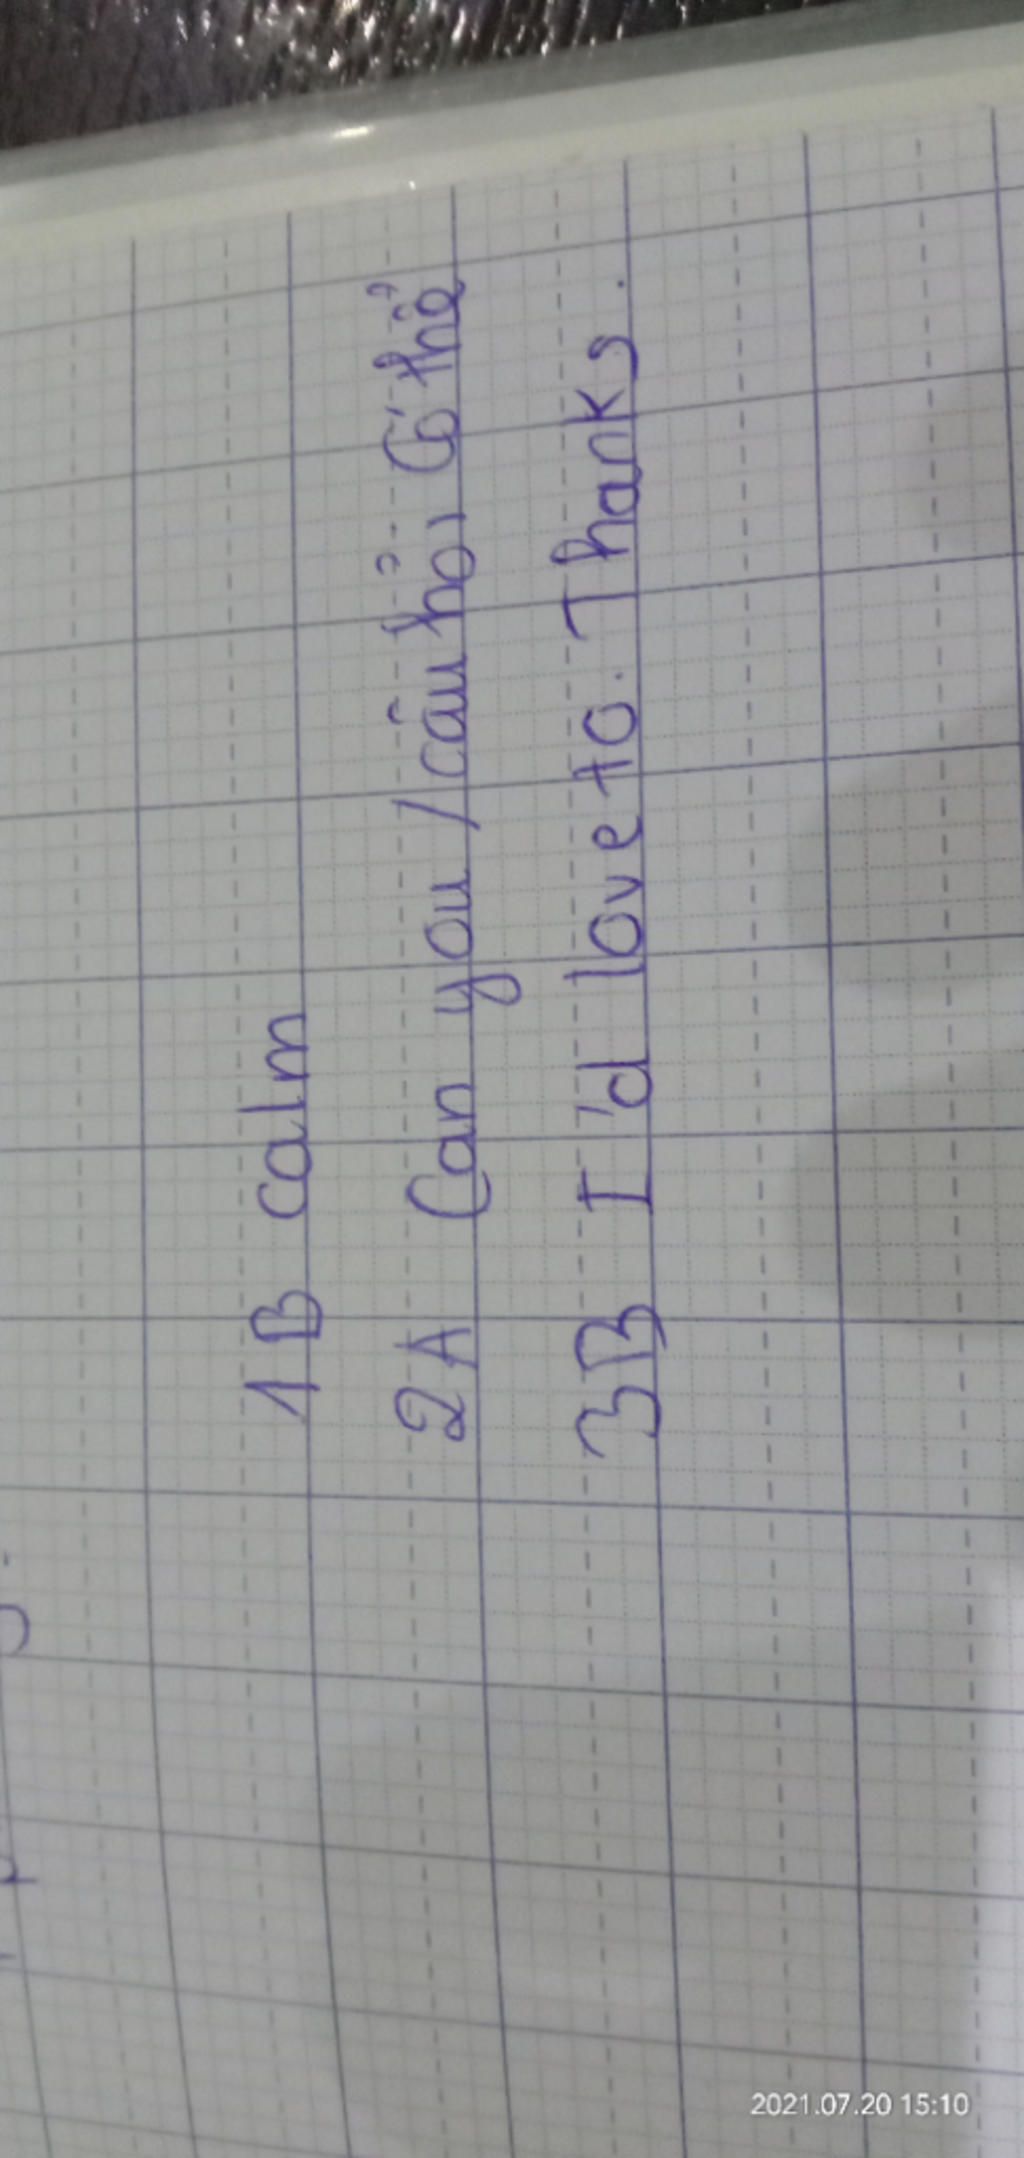 1B calm
2A Can you / câu hỏi Có thể
3B I'd love to. Thanks.
2021.07.20 15:10